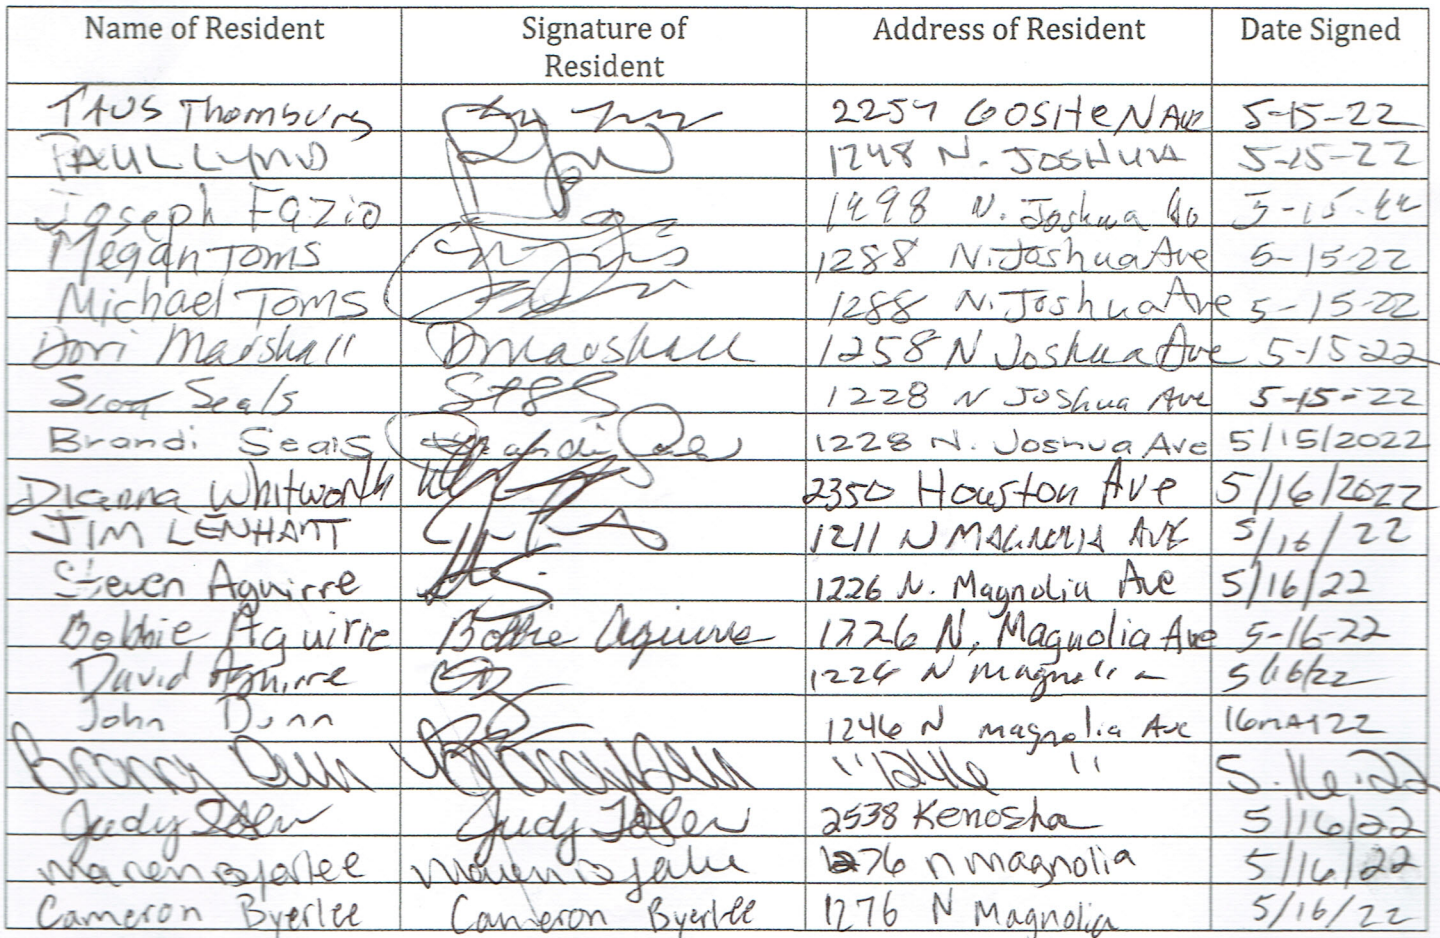 Name of Resident Signature of Resident Address of Resident Date Signed
Thornburg 2257 N Ave 5-15-22
PAUL LYND 1248 N. JOSHUA 5-15-22
Joseph Fazio 1298 N. Joshua 5-15-22
Megan Toms 1288 N. Joshua Ave 5-15-22
Michael Toms 1288 N. Joshua Ave 5-15-22
Dori Marshall DMarshall 1258 N Joshua Ave 5-15-22
Scott Seals 1228 N Joshua Ave 5-15-22
Brandi Seals Brandi 1228 N. Joshua Ave 5/15/2022
Dianna Whitworth 2350 Houston Ave 5/16/2022
JIM LENHART 1211 N MAGNOLIA AVE 5/16/22
Steven Aguirre 1226 N. Magnolia Ave 5/16/22
Bobbie Aguirre Bobbie Aguirre 1226 N. Magnolia Ave 5-16-22
David Aguirre 1226 N Magnolia 5/16/22
John Dunn 1246 N magnolia Ave 16MAY22
Dunn " 1246 " 5.16.22
Judy Judy 2538 Kenosha 5/16/22
Maren Byerlee Maren Byerlee 1276 N Magnolia 5/16/22
Cameron Byerlee Cameron Byerlee 1276 N Magnolia 5/16/22